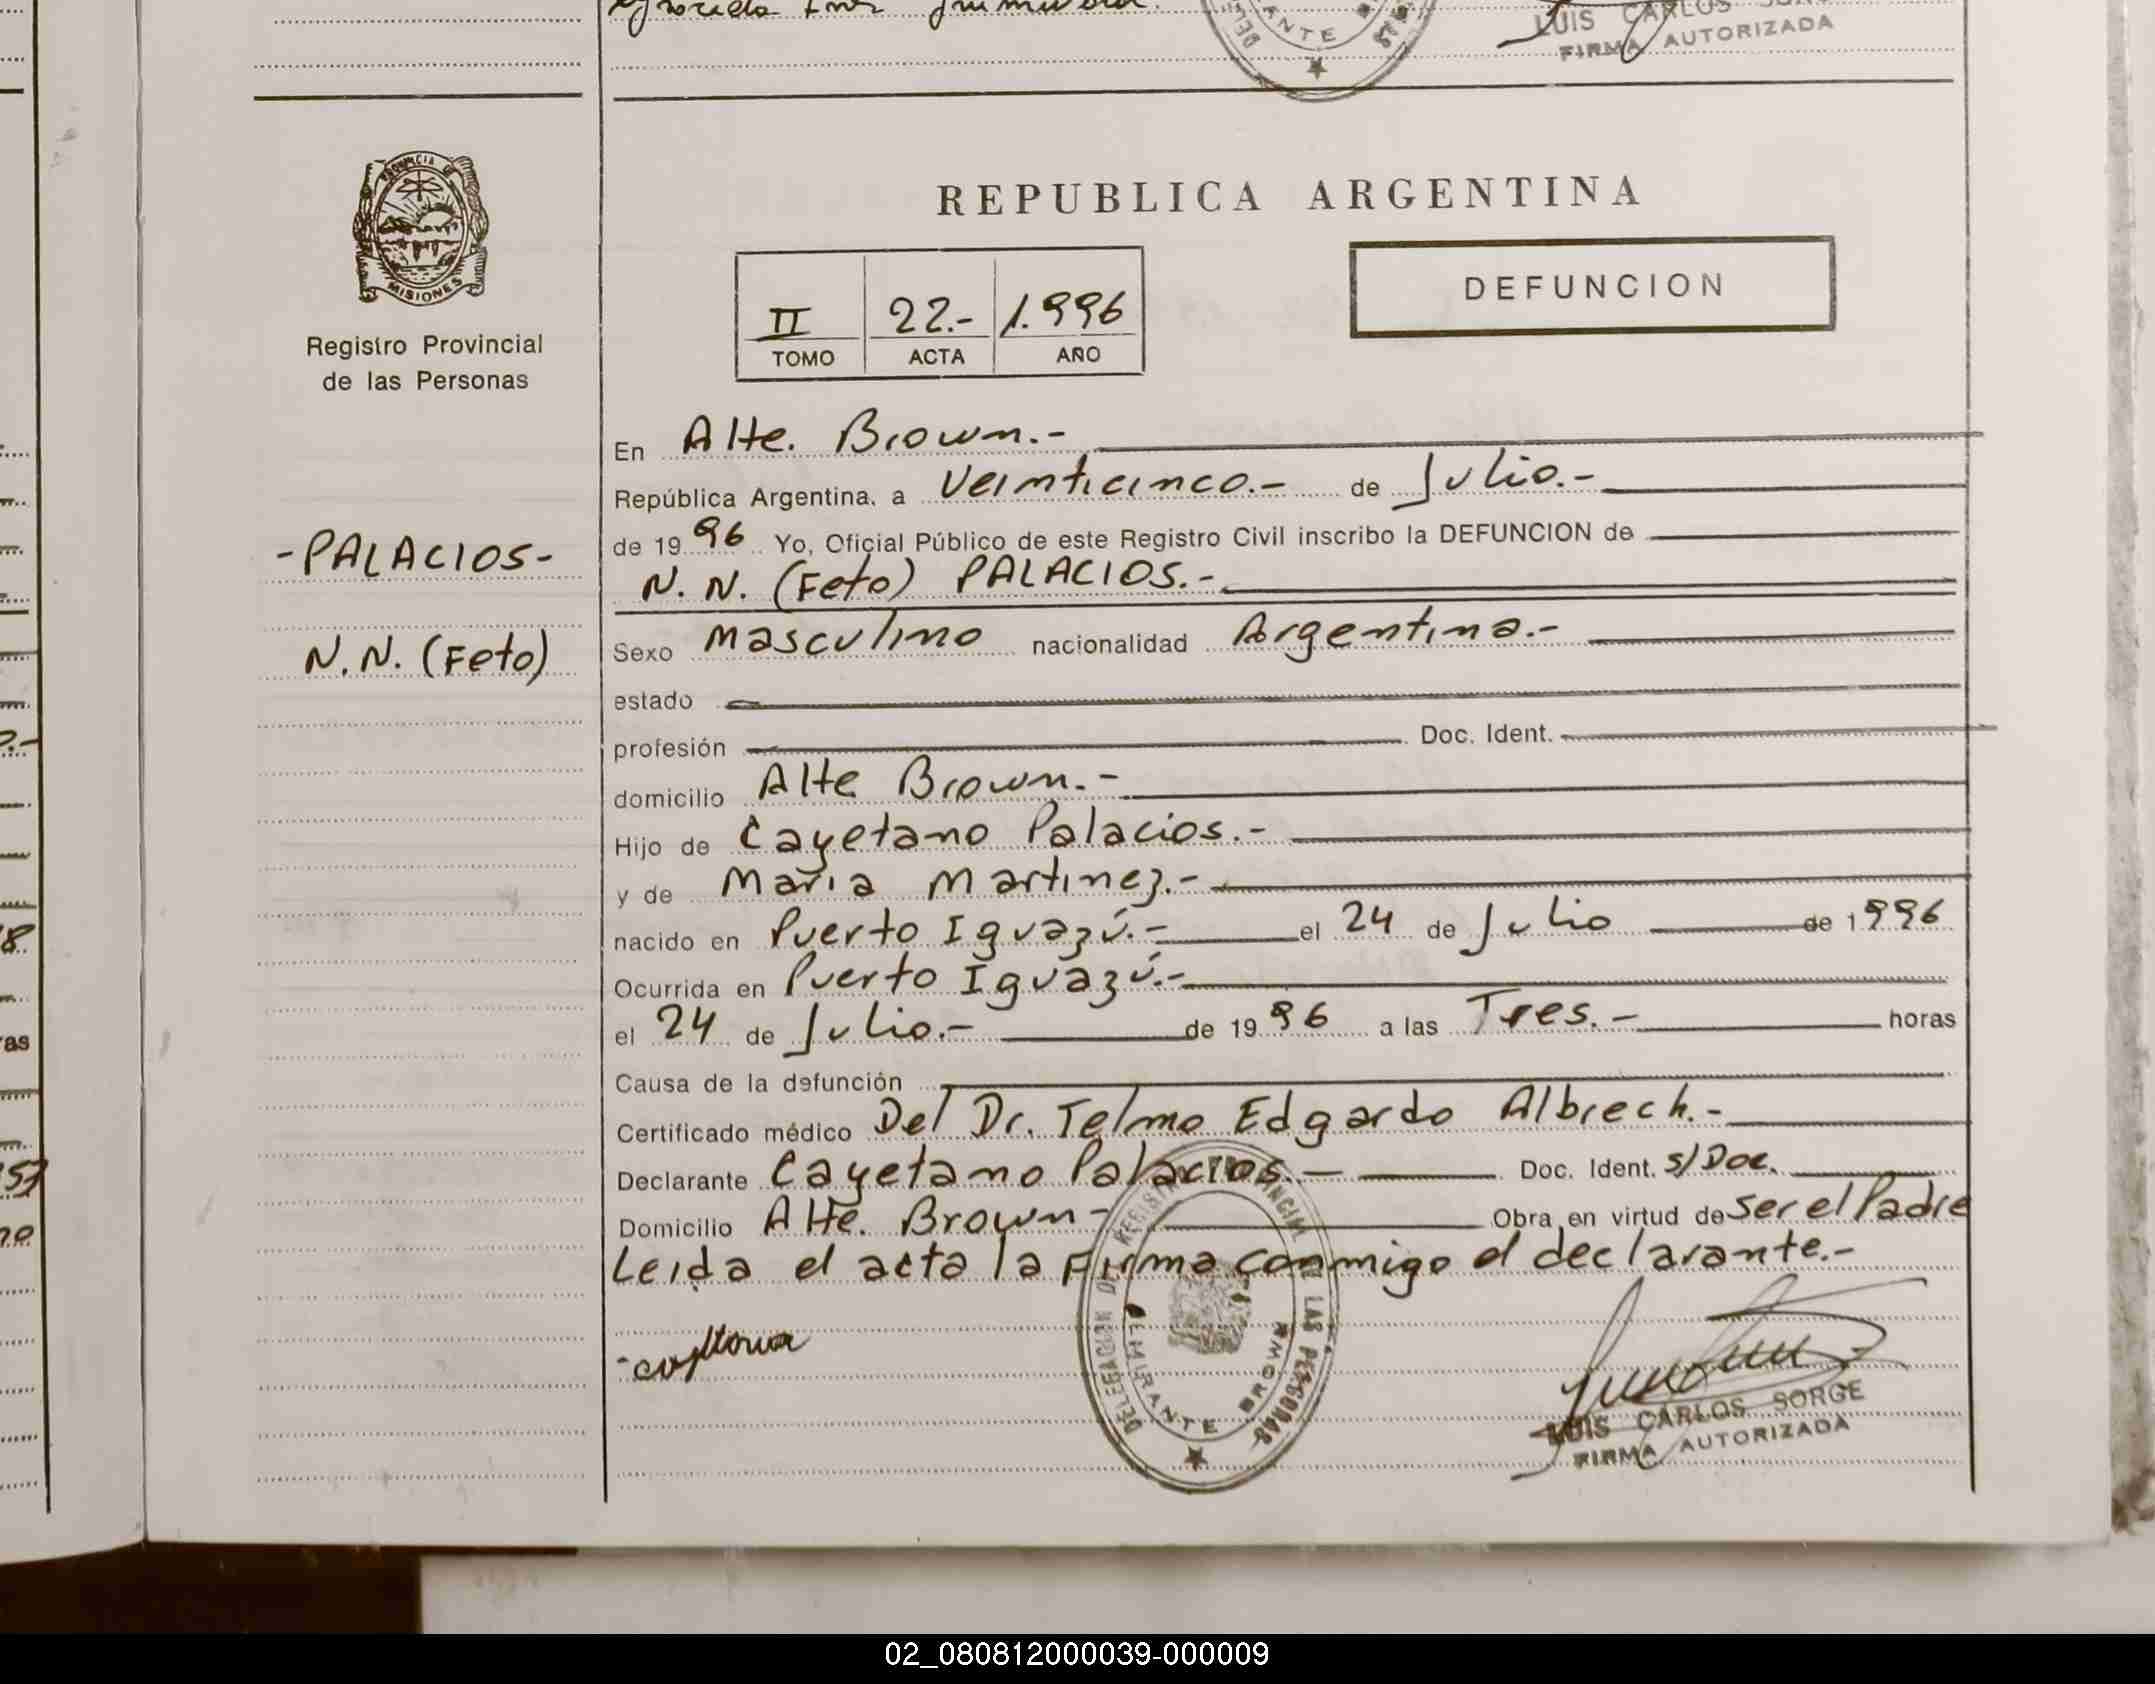 LUIS CARLOS
FIRMA AUTORIZADA
ANTE
PROVINCIA DE
MISIONES
Registro Provincial
de las Personas
REPUBLICA ARGENTINA
II 22.- 1.996
TOMO ACTA AÑO
DEFUNCION
En Alte. Brown.-
República Argentina, a Veinticinco.- de Julio.-
de 1996 Yo, Oficial Público de este Registro Civil inscribo la DEFUNCION de
-PALACIOS-
N. N. (Feto) PALACIOS.-
N.N. (Feto)
Sexo masculino nacionalidad Argentina.-
estado
profesión Doc. Ident.
domicilio Alte Brown.-
Hijo de Cayetano Palacios.-
y de Maria Martinez.-
nacido en Puerto Iguazú.- el 24 de Julio de 1996
Ocurrida en Puerto Iguazú.-
el 24 de Julio.- de 1996 a las Tres.- horas
Causa de la defunción
Certificado médico Del Dr. Telmo Edgardo Albrech.-
Declarante Cayetano Palacios.- Doc. Ident. s/Doc.
Domicilio Alte. Brown- Obra en virtud de ser el Padre
Leida el acta la Firma conmigo el declarante.-
DELEGACION DEL REGISTRO PROVINCIAL DE LAS PERSONAS
ALMIRANTE BROWN
LUIS CARLOS SORGE
FIRMA AUTORIZADA
02_080812000039-000009